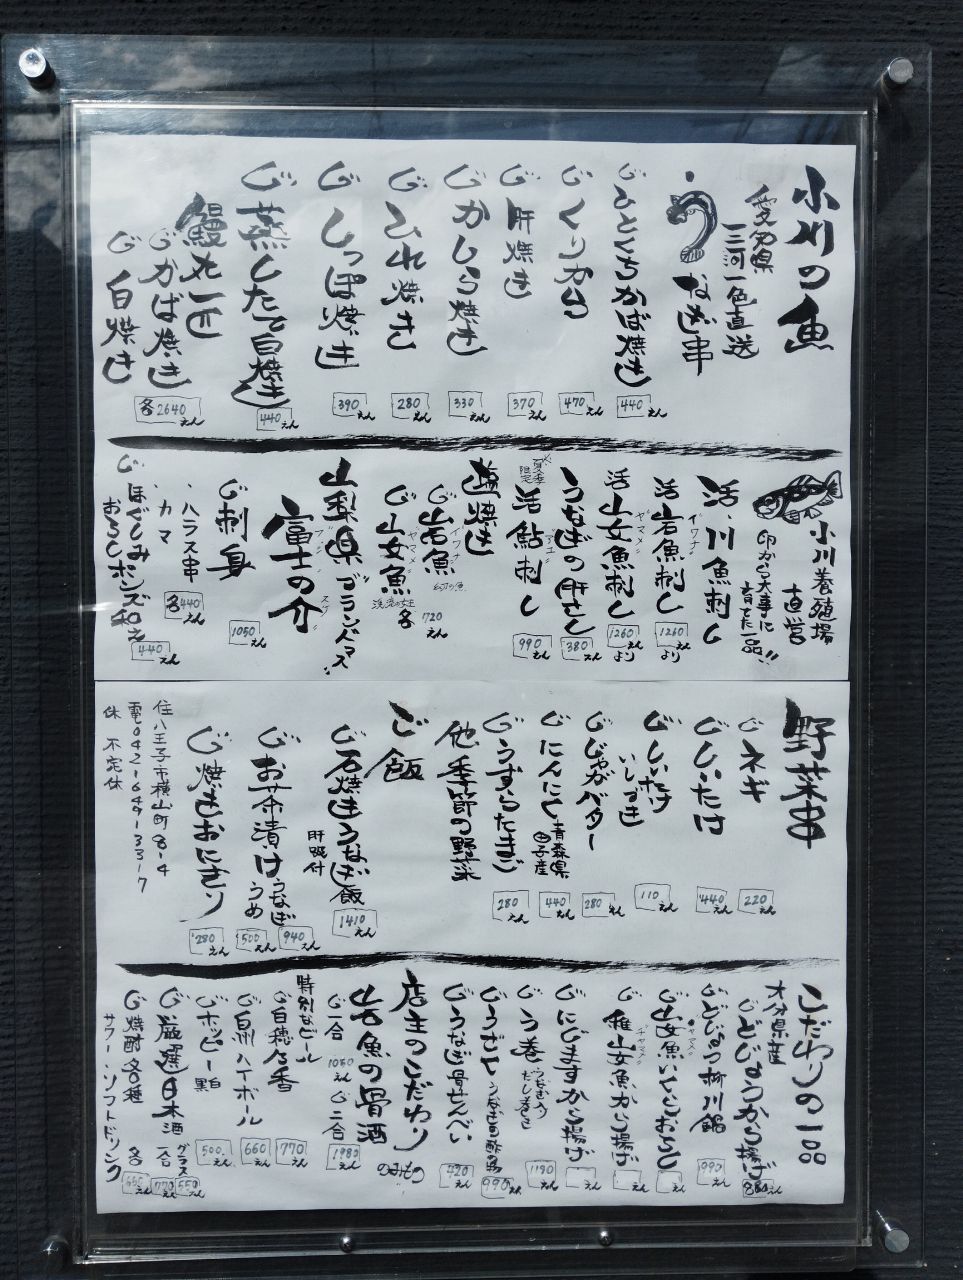 小川の魚
愛知県
三河一色直送
うなぎ串
ひとくちかば焼き
440えん
くりから
470えん
肝焼き
370えん
かしら焼き
330えん
ひれ焼き
280えん
しっぽ焼き
390えん
蒸したて白焼き
440えん
鰻丸一匹
かば焼き
白焼き
各2640えん
小川養殖場
直営
卵から大事に
育てた一品!!
活・川魚刺し
活岩魚刺し
イワナ
1260えんより
活山女魚刺し
ヤマメ
1260えんより
うなぎの肝さし
380えん
夏季限定
活鮎刺し
アユ
990えん
塩焼き
岩魚
イワナ
幻の魚
山女魚
ヤマメ
渓流の女王
各720えん
山梨県ブランドマス
富士の介
フジ スケ
刺身
1050えん
・ハラス串
・カマ
各440えん
ほぐしみ
おろしポンズ和え
440えん
野菜串
ネギ
220えん
しいたけ
440えん
しいたけ
いしづき
110えん
じゃがバター
280えん
にんにく
青森県
田子産
440えん
うずらたまご
280えん
他季節の野菜
ご飯
石焼きうなぎ飯
肝吸付
1410えん
お茶漬け
うなぎ
940えん
うめ
500えん
焼きおにぎり
280えん
住 八王子市横山町8-4
電 042-649-3317
休 不定休
こだわりの一品
大分県産
どじょうから揚げ
どじょう柳川鍋
990えん
山女魚いくらおろし
ヤマメ
稚山女魚から揚げ
チヤマメ
にじますから揚げ
う巻
うなぎ入りだし巻き
うざく
うなぎの酢の物
990えん
うなぎ骨せんべい
420えん
店主のこだわり
のみもの
岩魚の骨酒
一合
1050えん
二合
1980えん
特別なビール
白穂乃香
770えん
白州ハイボール
660えん
ホッピー 白 黒
500えん
厳選日本酒
グラス
550えん
一合
770えん
焼酎各種
サワー・ソフトドリンク
各